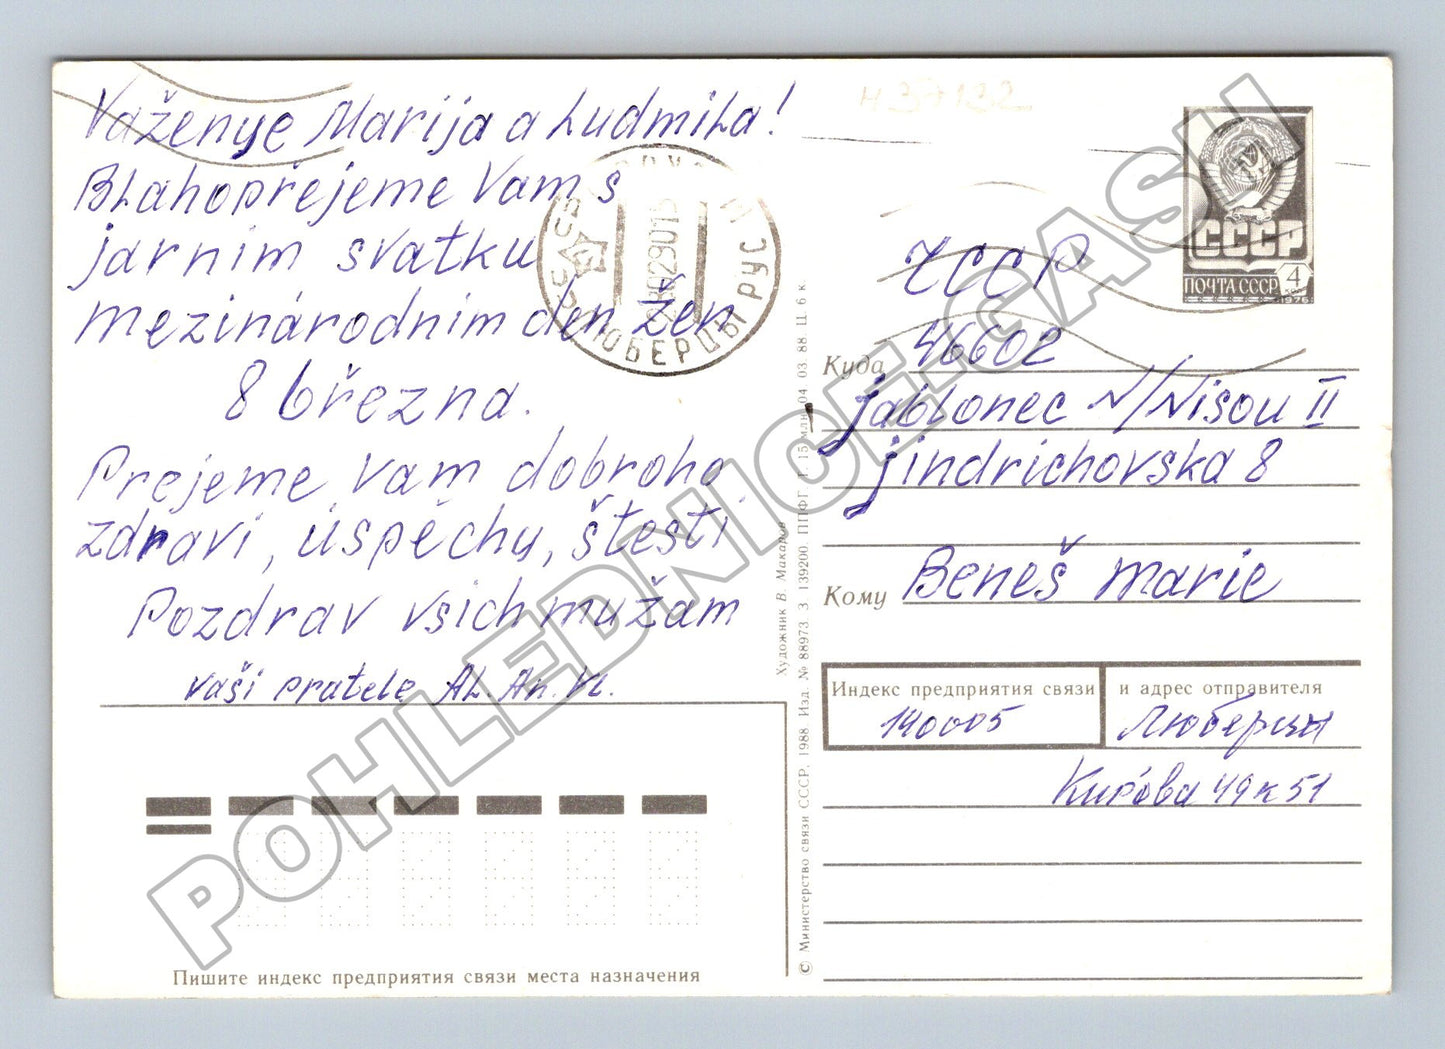 Važenye Marija a Ludmila!
Blahopřejeme Vam s
jarnim svatku
mezinárodnim den žen
8 března.
Prejeme vam dobroho
zdravi, úspěchy, štesti
Pozdrav všich mužam
vaši pratele AL. An.
ЛЮБЕРЦЫ РУС
Н 37132
СССР
ПОЧТА СССР
4
1976
ЧССР
Куда 46602
Jablonec N/Nisou II
Jindrichovska 8
Кому Beneš Marie
Индекс предприятия связи и адрес отправителя
140005 Люберцы
Кирова 49 к 51
Пишите индекс предприятия связи места назначения
Художник В. Макаров
© Министерство связи СССР, 1988. Изд. № 88973 З. 139200. ППФГ Т. 15 млн. 04. 03. 88. Ц. 6 к.
POHLEDNICE.CASH